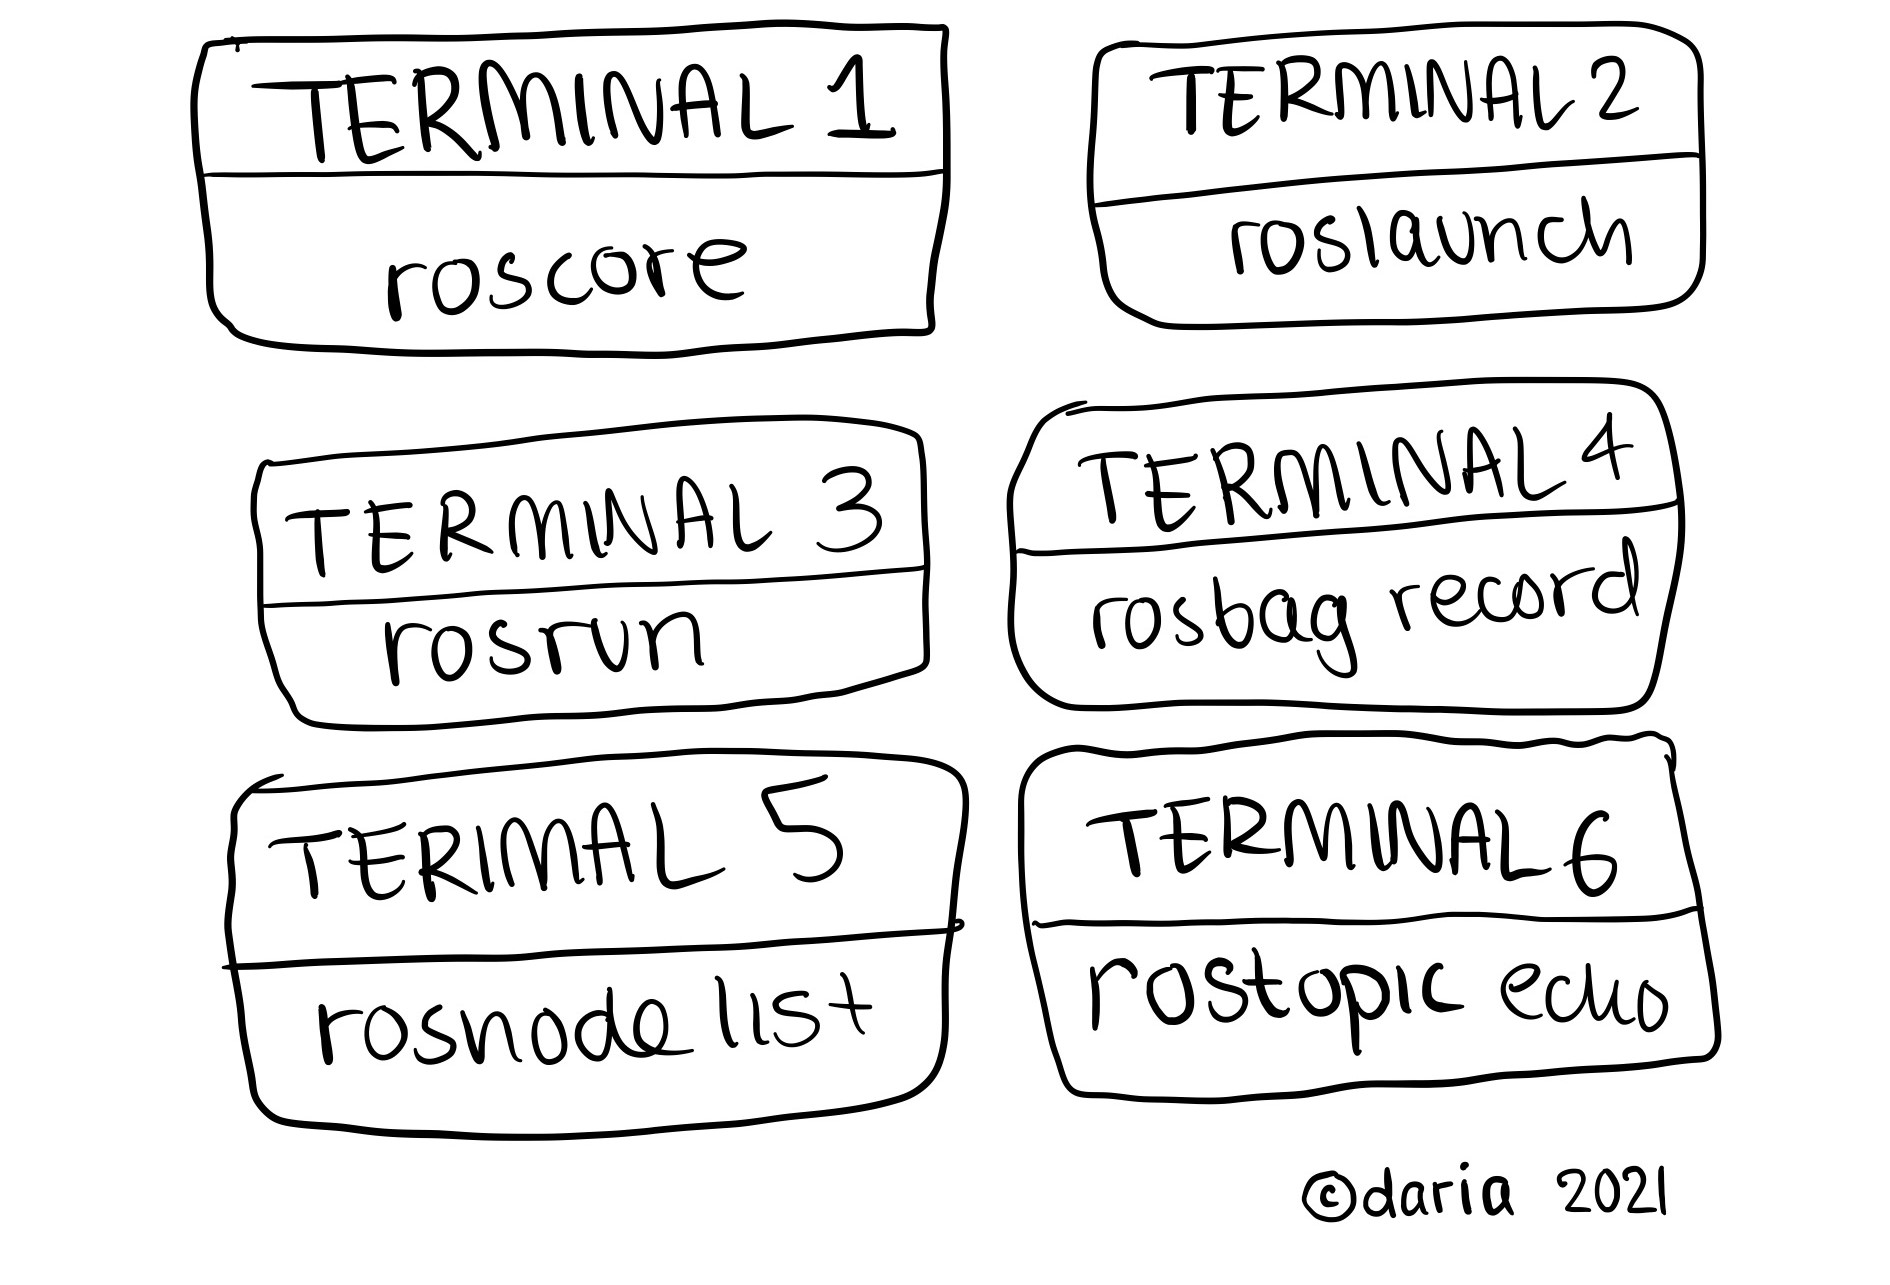 TERMINAL 1
roscore
TERMINAL 2
roslaunch
TERMINAL 3
rosrun
TERMINAL 4
rosbag record
TERIMAL 5
rosnode list
TERMINAL 6
rostopic echo
©daria 2021